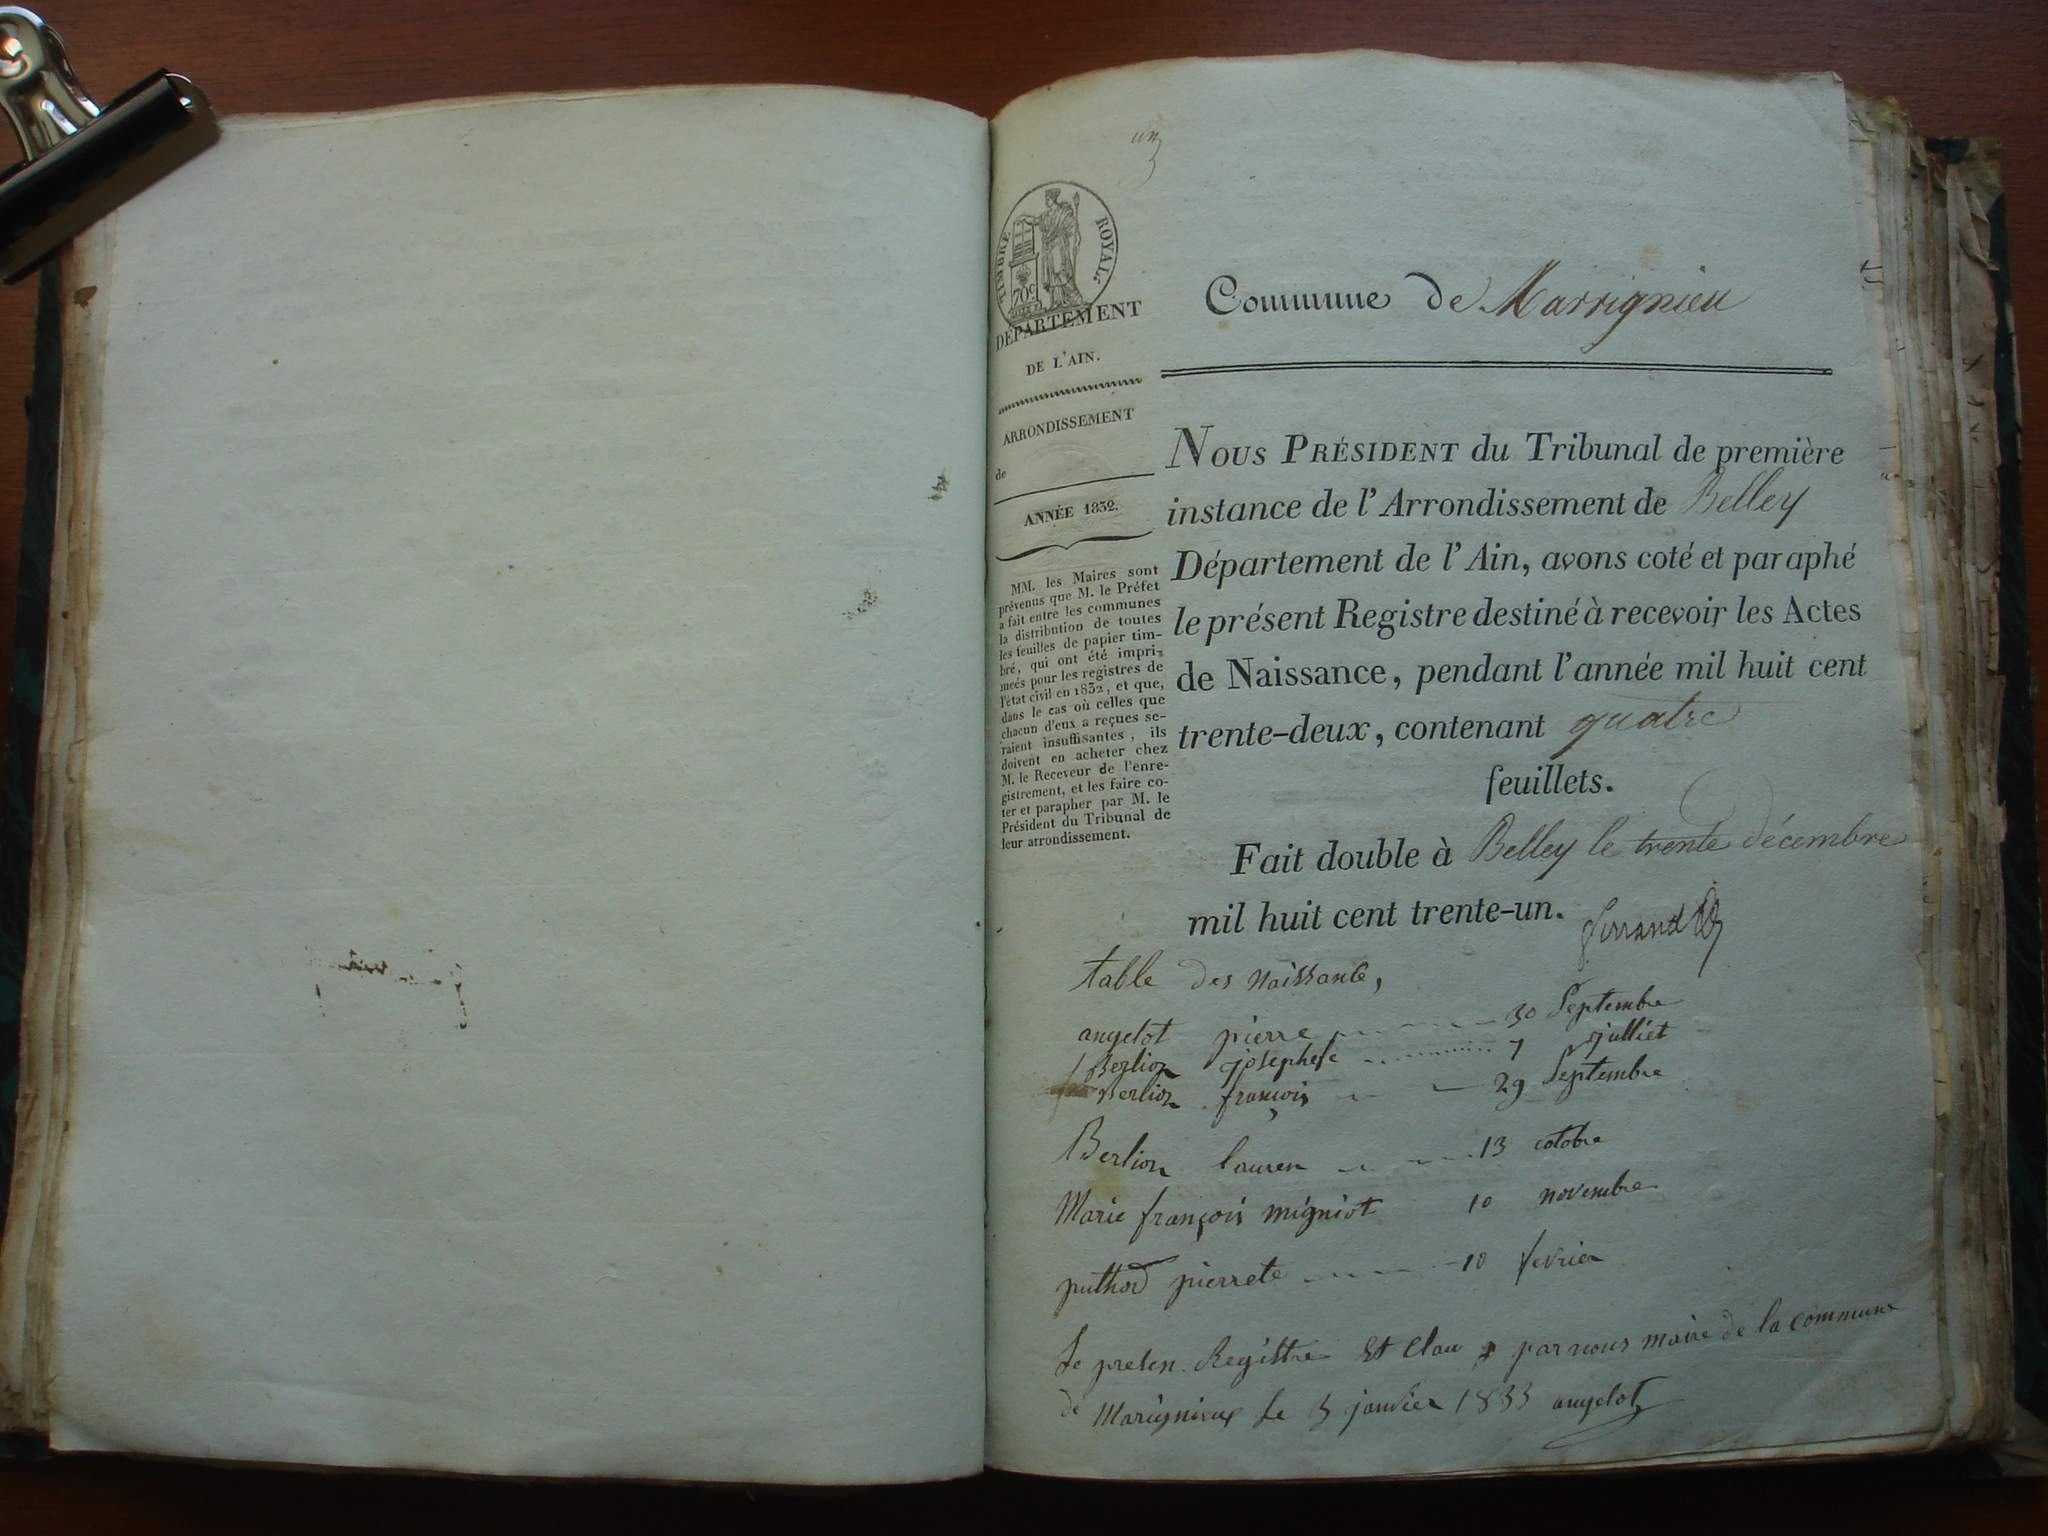 un
TIMBRE ROYAL
70c
DÉPARTEMENT
DE L'AIN.
ARRONDISSEMENT
de
ANNÉE 1832.
MM. les Maires sont
prévenus que M. le Préfet
a fait entre les communes
la distribution de toutes
les feuilles de papier tim-
bré, qui ont été impri-
meés pour les registres de
l'état civil en 1832, et que,
dans le cas où celles que
chacun d'eux a reçues se-
raient insuffisantes, ils
doivent en acheter chez
M. le Receveur de l'enre-
gistrement, et les faire co-
ter et parapher par M. le
Président du Tribunal de
leur arrondissement.
Commune de Marrignieu
NOUS PRÉSIDENT du Tribunal de première
instance de l'Arrondissement de Belley
Département de l'Ain, avons coté et paraphé
le présent Registre destiné à recevoir les Actes
de Naissance, pendant l'année mil huit cent
trente-deux, contenant quatre
feuillets.
Fait double à Belley le trente décembre
mil huit cent trente-un.
table des naissance,
angelot pierre 30 Septembre
Berlion josephete 7 julliet
Berlion françois 29 Septembre
Berlion lauren 13 octobre
Marie françois migniot 10 novembre
puthod pierrete 10 fevrier
Le presen Registre Et Clau par nous maire de la commune
de Marignieux le 3 janvier 1833 angelot